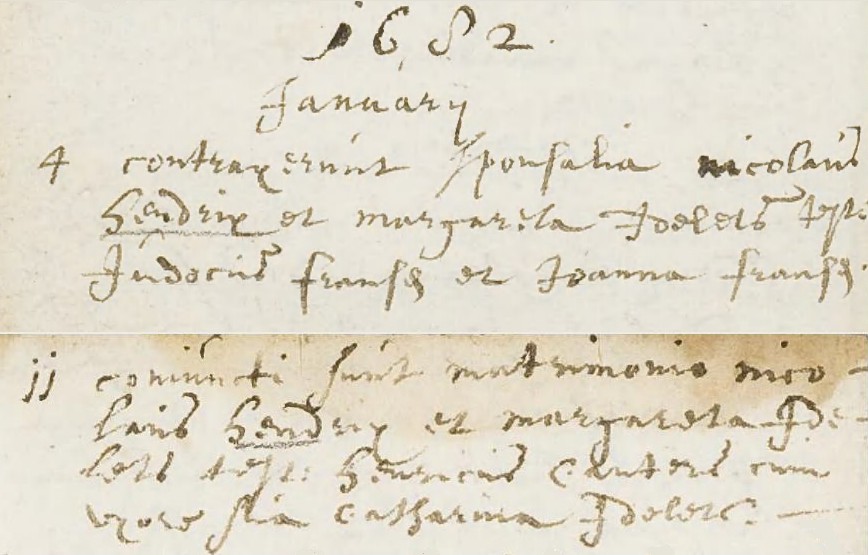 1682.
January
4 contraxerunt sponsalia nicolaus
Hendrix et margareta Idelets test
Judocus fransen et Joanna fransen
jj coniuncti sunt matrimonio nico-
laus Hendrix et margareta Ide-
lets test: Henricus Canters cum
uxore sua Catharina Idelets.